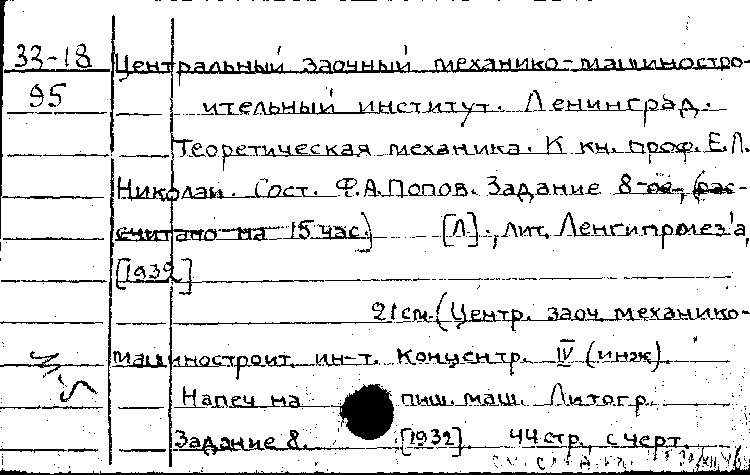 33-18 Центральный заочный механико-машиностро-
95 ительный институт. Ленинград.
Теоретическая механика. К кн. проф. Е.Л.
Николаи. Сост. Ф.А. Попов. Задание 8-ое, (рас-
считано на 15 час.) [Л]., лит. Ленгипромез'а,
[1932]
21 см. (Центр. заоч. механико-
машиностроит. ин-т. Концентр. IV (инж).
Напеч на пиш. маш. Литогр.
Задание 8. [1932]. 44 стр., с черт.